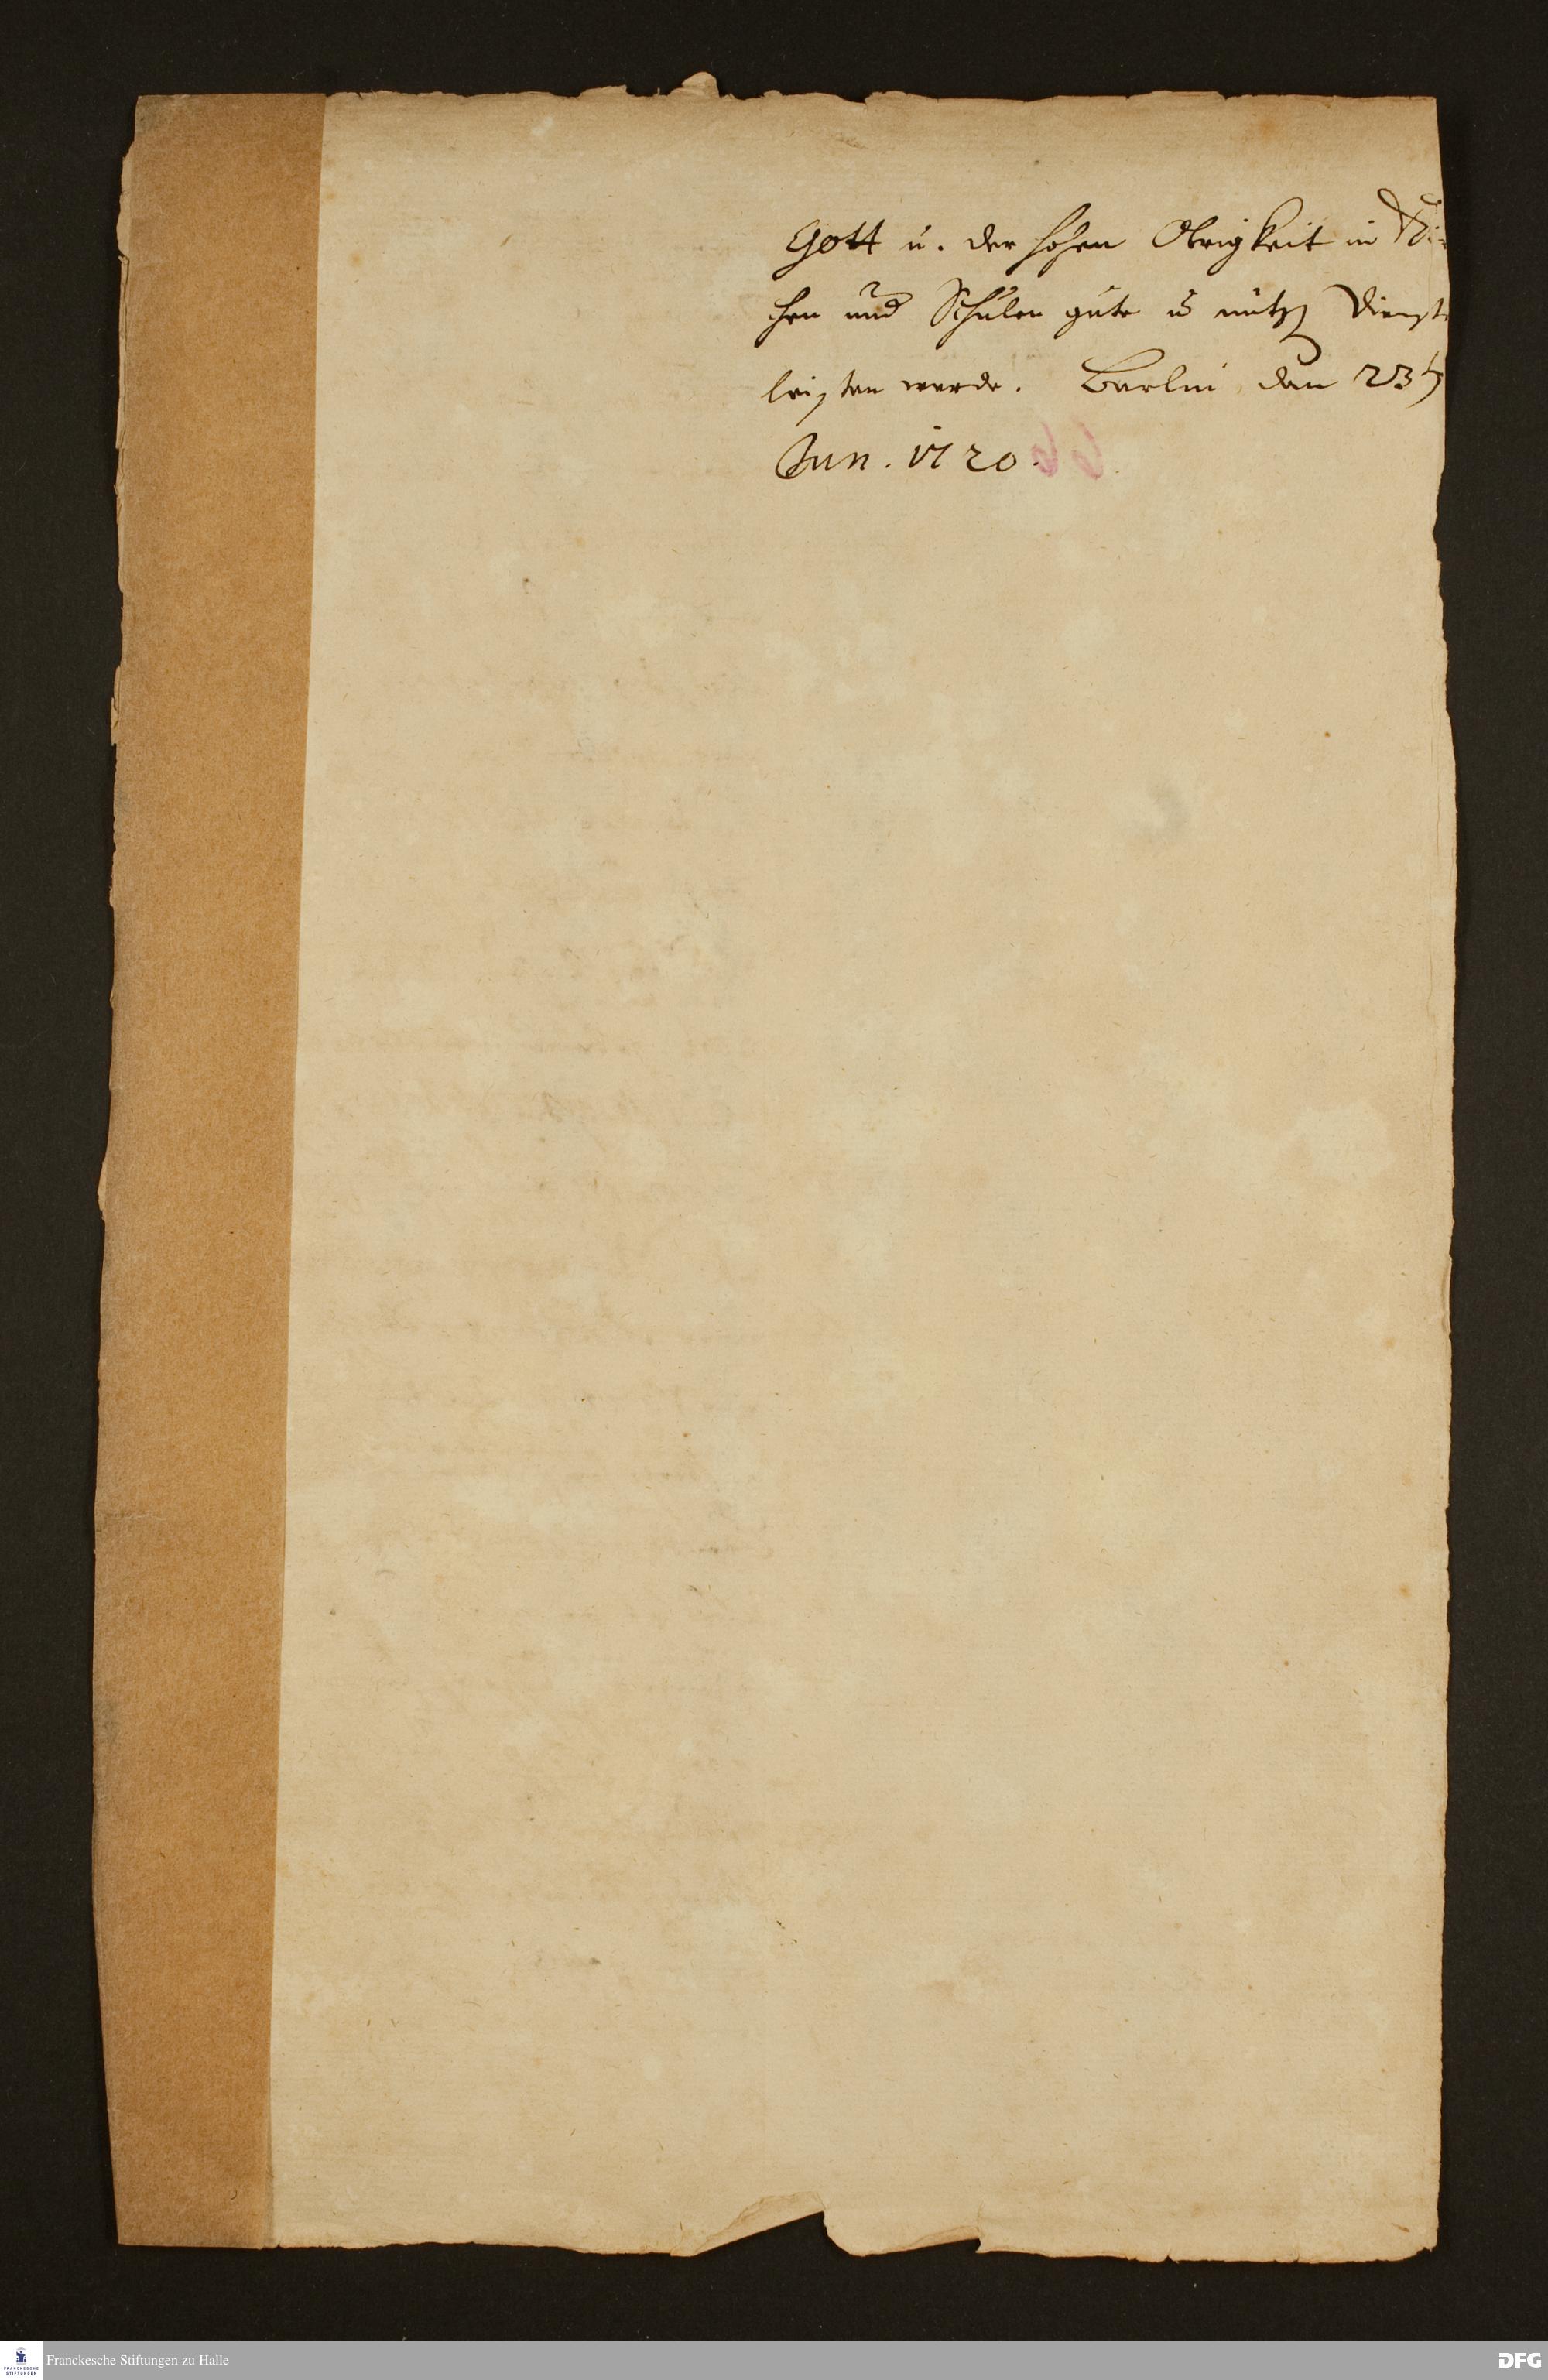 Gott u. der hohen Obrigkeit in Kir
chen und Schulen gute u nützl Dienste
leisten werde. Berlin, den 23t
Jun. 1720.
Franckesche Stiftungen zu Halle
FRANCKESCHE
STIFTUNGEN
DFG